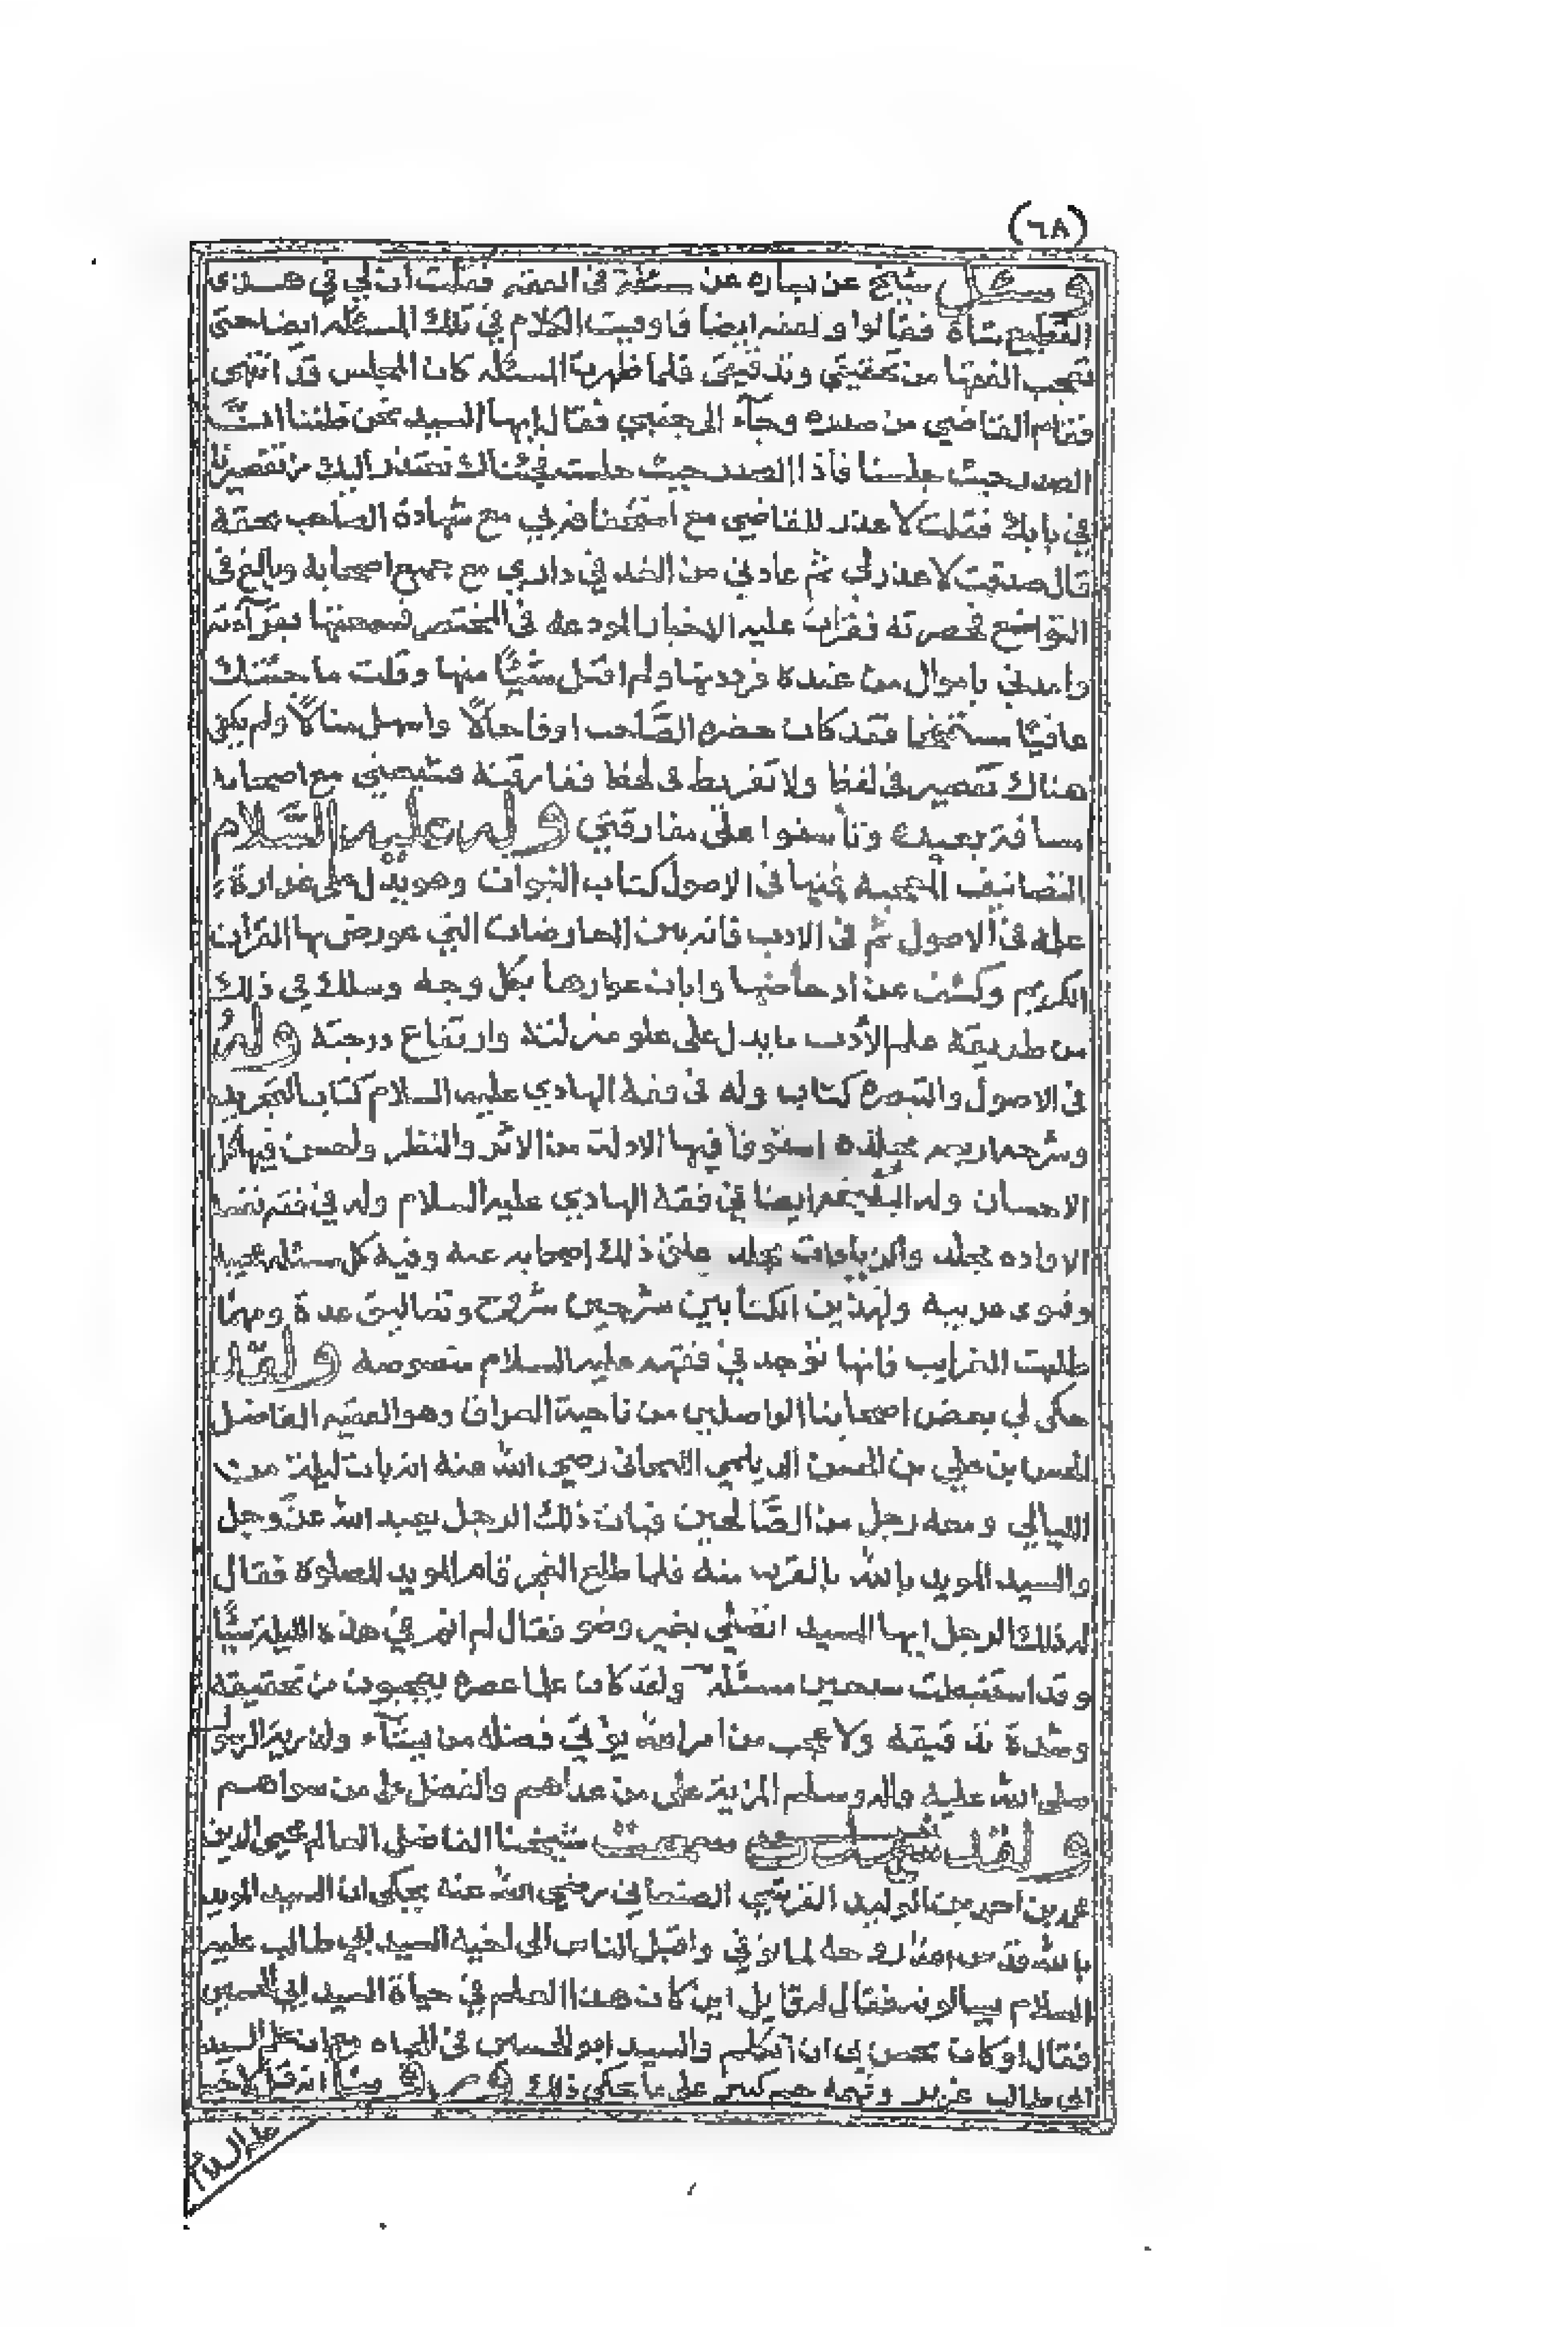 (٦٨)
وسئل شيخ عن يساره عن مسئلة في الفقه فقلت ان لي في هذا
القطيع شاة فقالوا والفقه ايضا فاوفيت الكلام في تلك المسئلة ايضا حتى
تعجب الفقها من تحقيقي وتدقيقي فلما ظهرت المسئلة كان المجلس قد انتهى
فقام القاضي من صدره وجآء الى جنبي فقال ايها السيد نحن ظننا انّ
الصدر حيث جلسنا فاذا الصدر حيث جلست فجئناك نعتذر اليك من تقصيرنا
في بابك فقلت لا عذر للقاضي مع استخفافه بي مع شهادة الصاحب بحقه
قال صدقت لا عذر لي ثم عادني من الغد في داري مع جميع اصحابه وبالغ في
التواضع فحضرته فقرات عليه الاخبار المودعة في المختصر فسمعتها بقرآءته
وامدني باموال من عنده فرددتها ولم اقبل شيًا منها وقلت ما جئتك
عافيًا مستمنحا فقد كان حضرة الصّاحب اوفا حالًا واسهل منالًا ولم يكن
هناك تقصير في لفظ ولا تفريط في لحظ ففارقته فشيعني مع اصحابه
مسافة بعيدة وتأسفوا على مفارقتي وله عليه السّلام
التصانيف العجيبة فمنها في الاصول كتاب النبوات وهو يدل على غزارة
علمه في الاصول ثم في الادب فانه بين المعارضات التي عورض بها القرآن
الكريم وكشف عن ادحاضها وابان عوارها بكل وجه وسلك في ذلك
من طريقة علم الأدب ما يدل على علو منزلته وارتفاع درجته وله
في الاصول والتبصرة كتاب وله في فقه الهادي عليه السلام كتاب التجريد
وشرحه اربعة مجلدة استوفا فيها الادلة من الاثر والنظر واحسن فيها كل
الاحسان وله البلغة ايضا في فقه الهادي عليه السلام وله في فقه نفسه
الافاده مجلد والزيادات مجلد علق ذلك اصحابه عنه وفيه كل مسئلة عجيبة
وفتوى غريبه ولهذين الكتابين شرحين شروح وتعاليق عدة ومهما
طلبت الغرايب فانها توجد في فقهه عليه السلام منصوصة ولقد
حكى لي بعض اصحابنا الواصلين من ناحية العراق وهو الفقيه الفاضل
الحسن بن علي بن الحسن الديلمي رضي الله عنه انه بات ليلة من
الليالي ومعه رجل من الصّالحين وبات ذلك الرجل يعبد الله عزّ وجل
والسيد المويد بالله بالقرب منه فلما طلع الفجر قام المويد للصلوة فقال
له ذلك الرجل ايها السيد اتصلي بغير وضو فقال لم انم في هذه الليلة شيًا
وقد استنبطت سبعين مسئلة ولقد كان علما عصره يعجبون من تحقيقه
وشدة تدقيقه ولا عجب من امر الله يؤتي فضله من يشآء ولذرية الرسول
صلى الله عليه واله وسلم المزية على من عداهم والفضل على من سواهم
ولقد سمعت شيخنا الفاضل العالم محيي الدين
محمد بن احمد بن الوليد القرشي الصنعاني رضي الله عنه يحكي ان السيد المويد
بالله قدس الله روحه لما توفي واقبل الناس الى اخيه السيد ابي طالب عليه
السلام يسالونه فقال له قايل اين كان هذا العلم في حياة السيد ابي الحسين
فقال اوكان يحسن بي ان اتكلم والسيد ابو الحسين في الحياه مع ان علم السيد
ابي طالب غزير وفهمه جم كبير على ما حكى ذلك وروينا انه قال لاخيه
عليه السلام